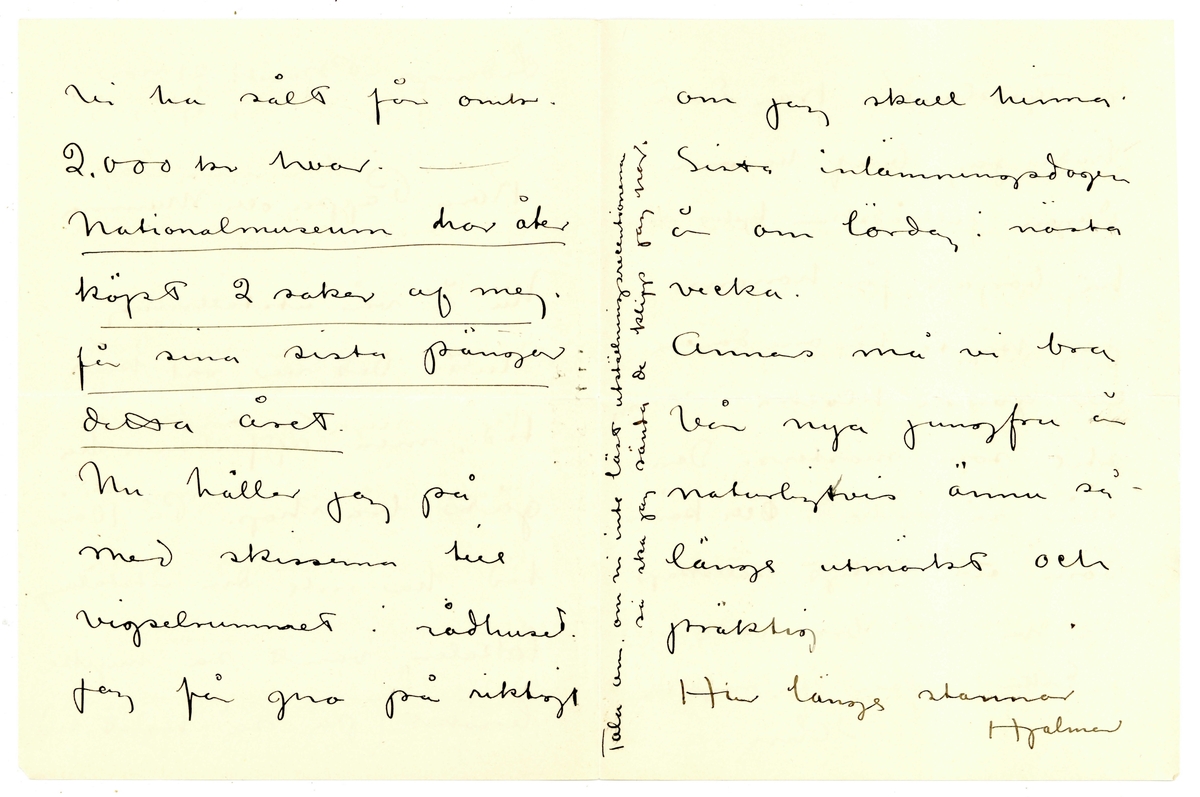 Vi ha sålt för omkr.
2.000 kr hvar. —
Nationalmuseum har åter
köpt 2 saker af mej.
för sina sista pängar
detta året.
Nu håller jag på
med skisserna till
vigselrummet i rådhuset.
Jag får gno på riktigt
om jag skall hinna.
Sista inlämningsdagen
är om lördag i nästa
vecka.
Annars må vi bra
Vår nya jungfru är
naturligtvis ännu så-
länge utmärkt och
präktig
Hur länge stannar
Hjalmar
Tala om, om ni inte läst utställningsrecentionerna
så ska jag sända de klipp jag har.